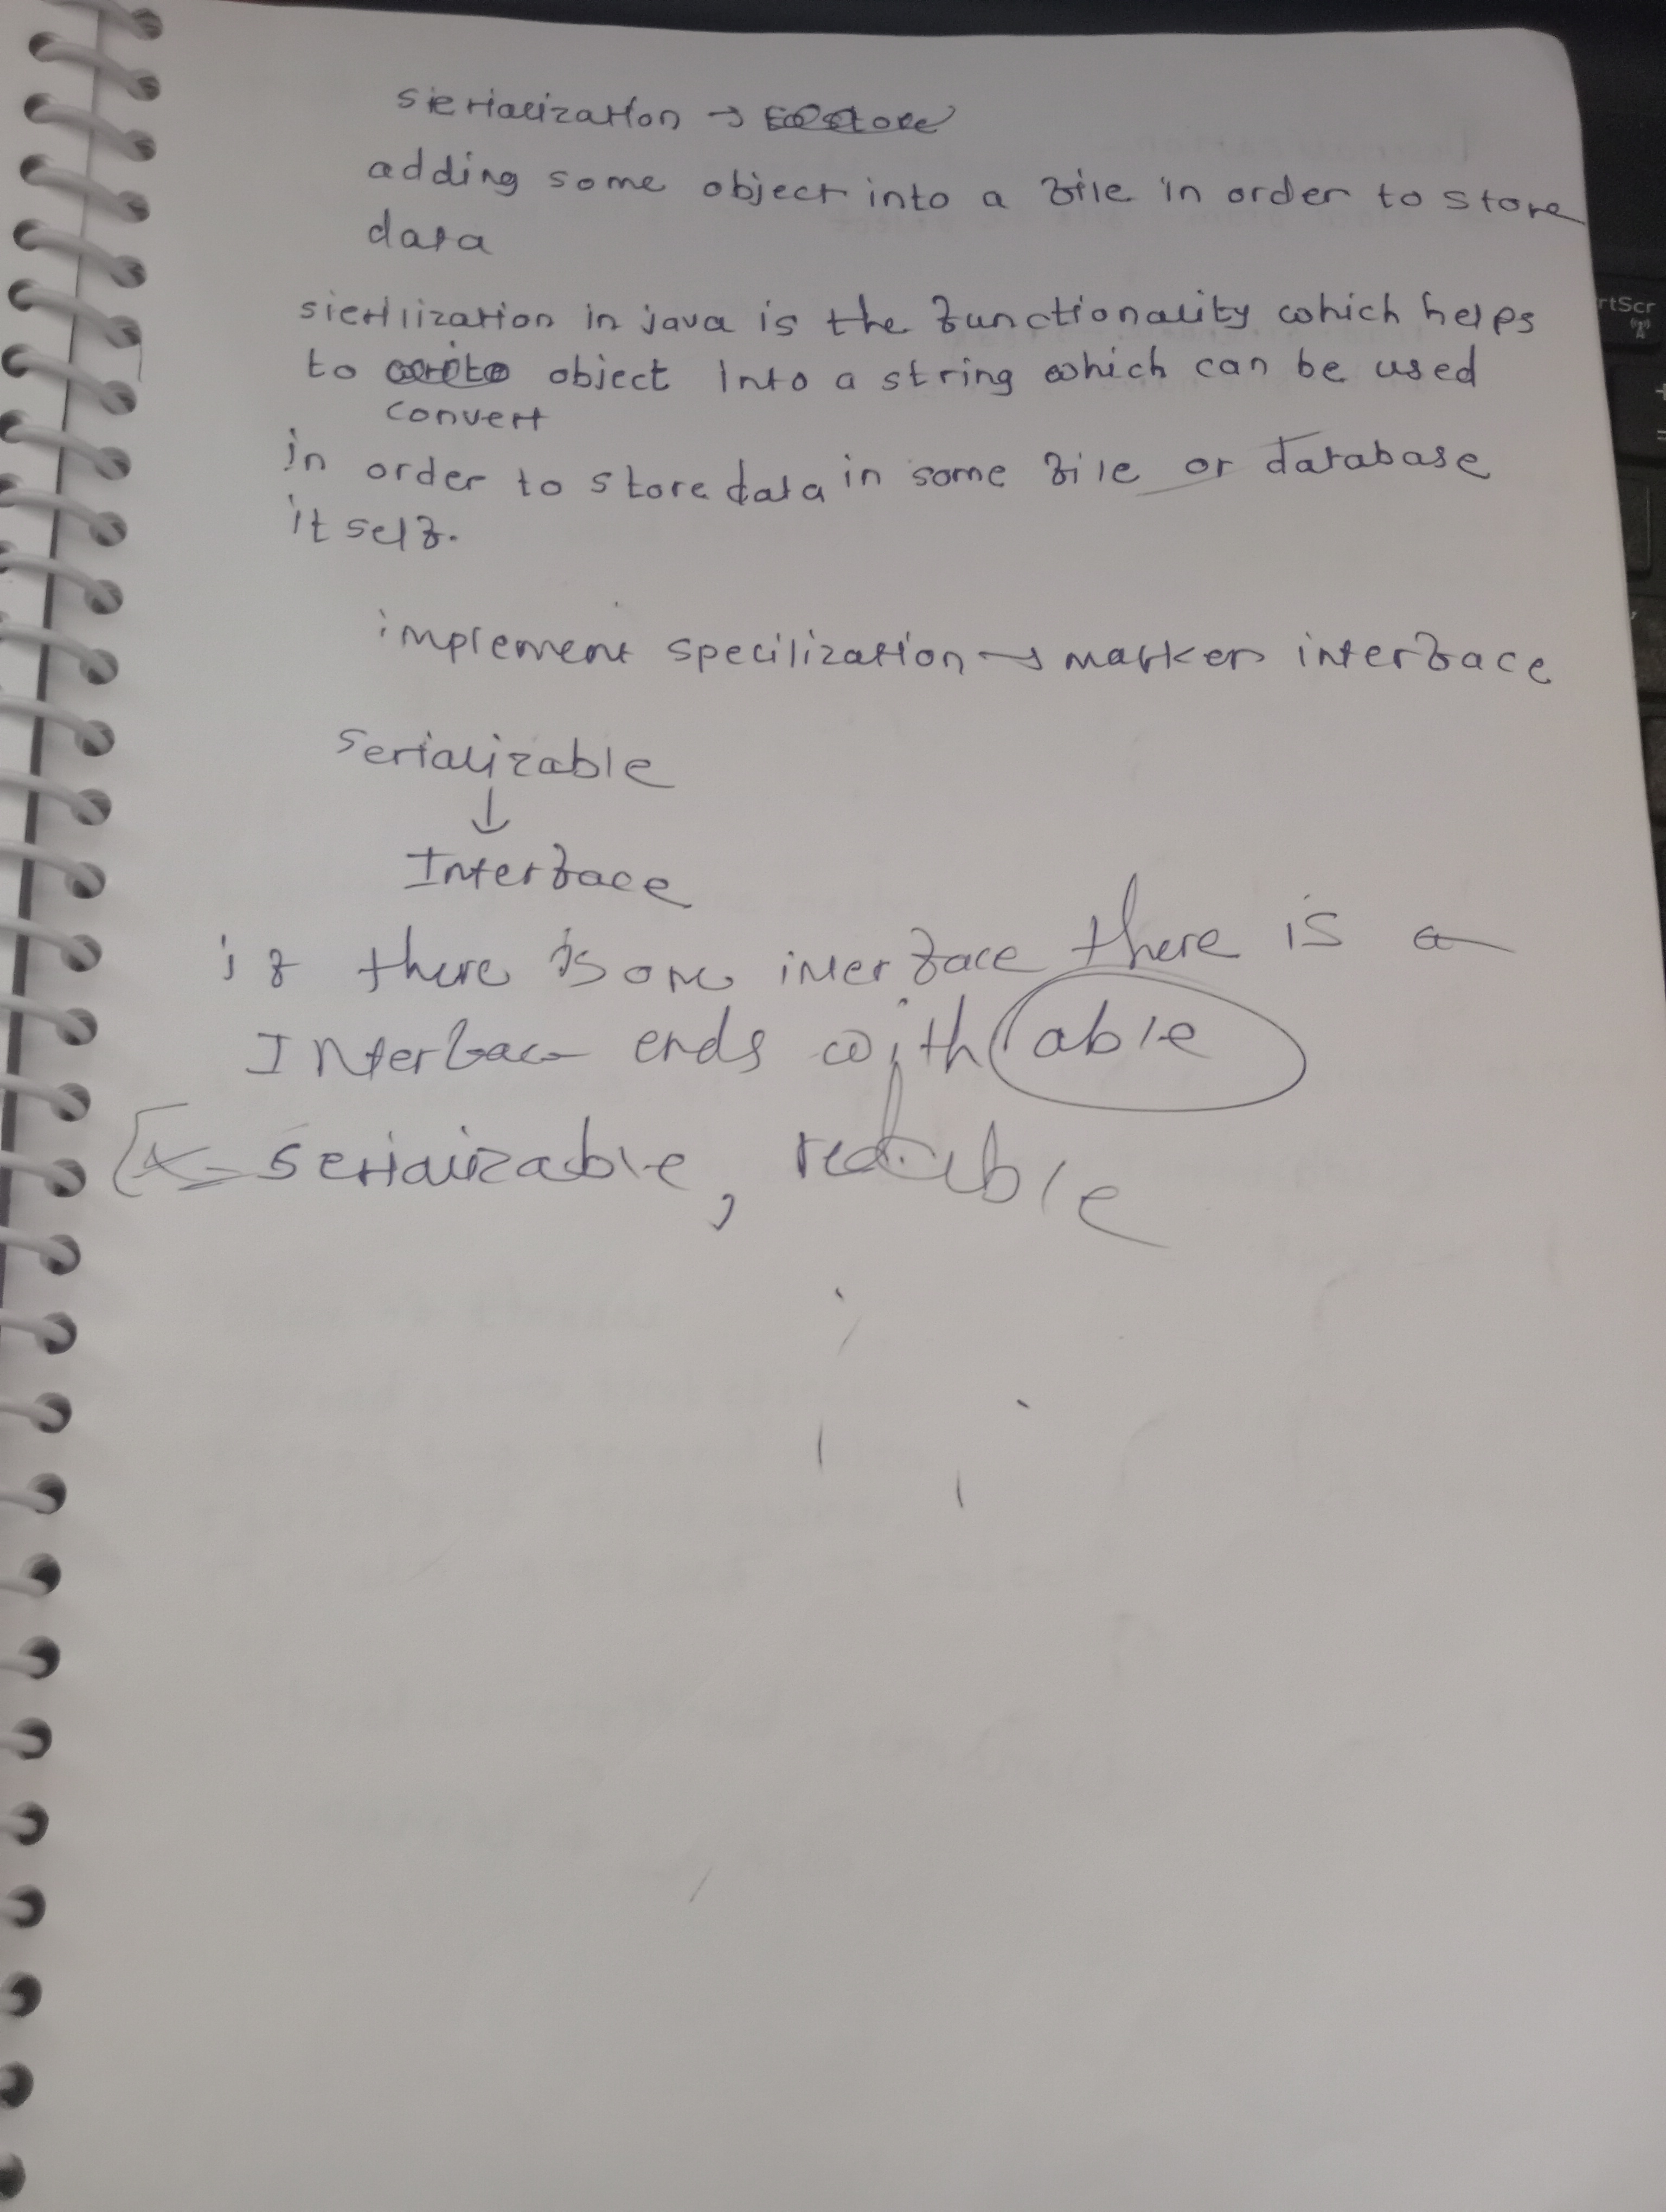 sierialization →
adding some object into a file in order to store
data
sierilization in java is the functionality which helps
to write object into a string which can be used
convert
in order to store data in some file or database
itself.
implement specilization → marker interface
serializable
↓
Interface
if there is one interface there is a
Interface ends with able
Ex - serializable,
rtScr